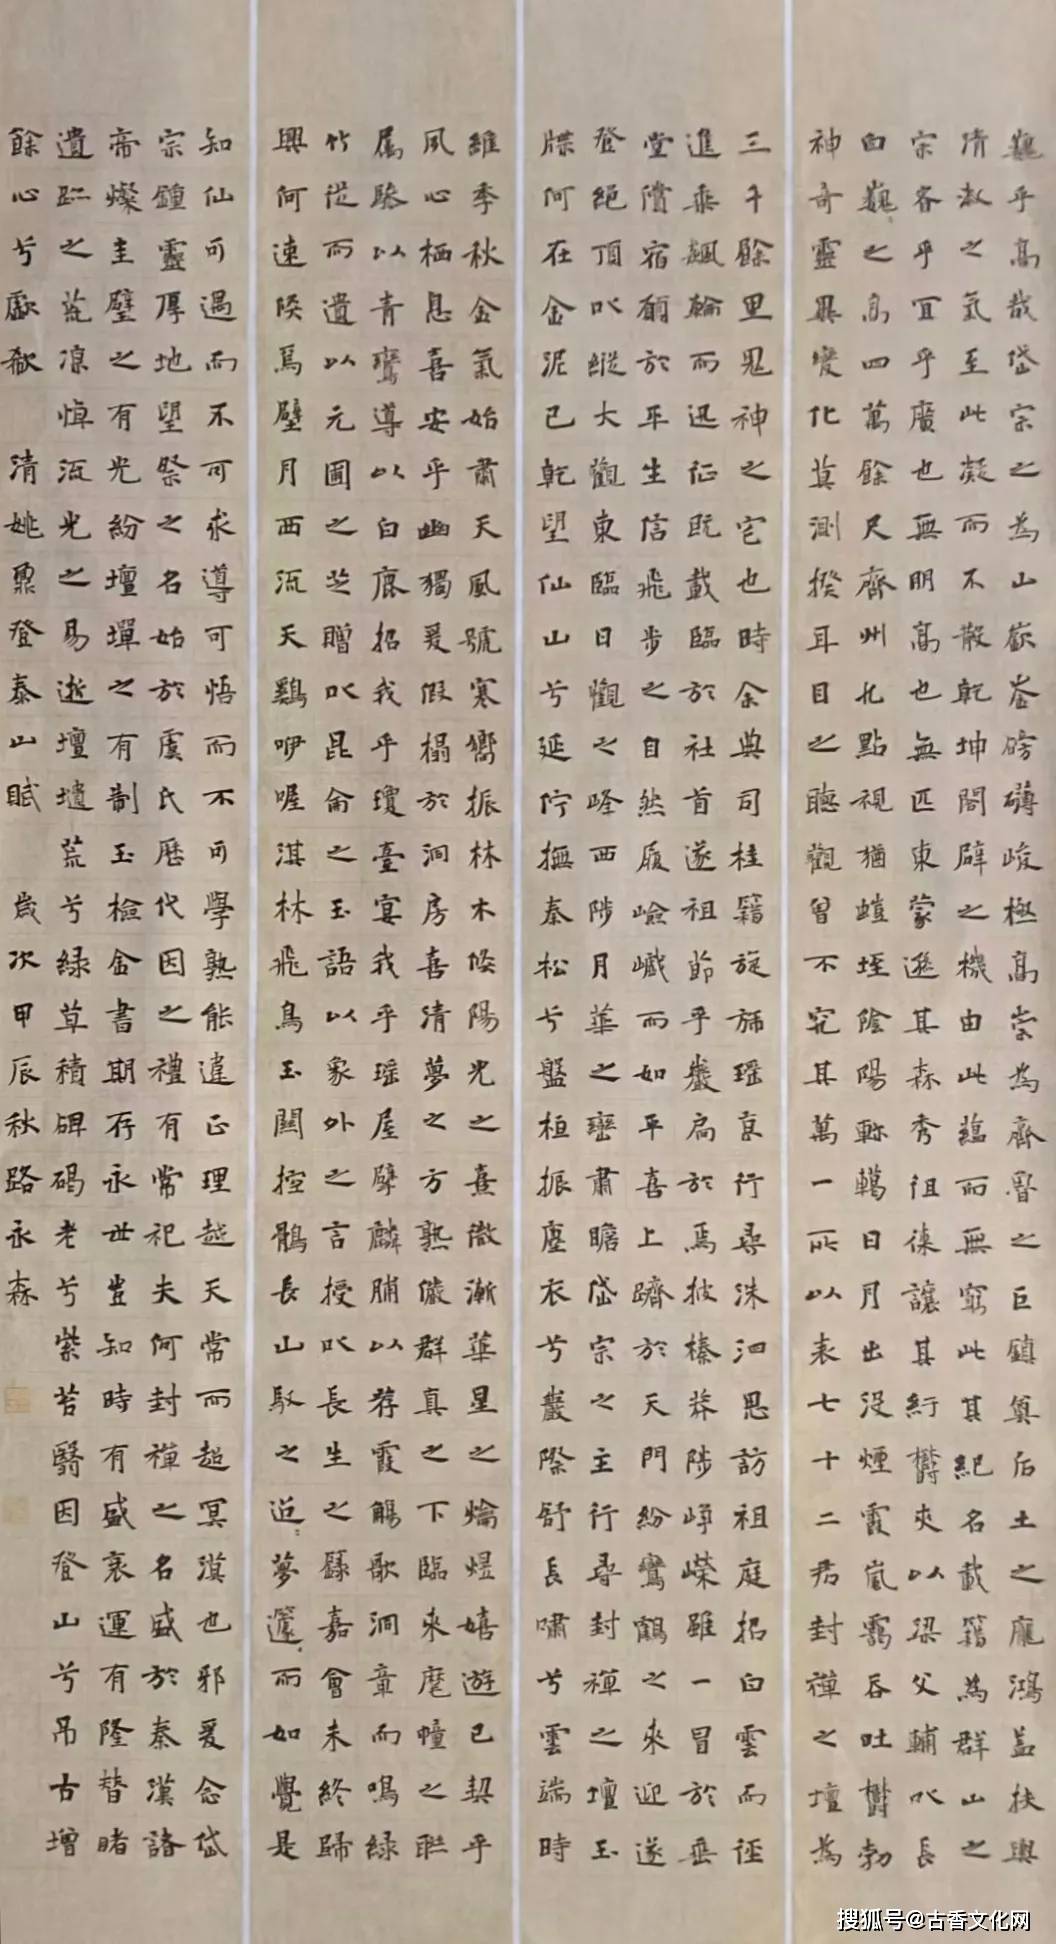 巍乎高哉岱宗之為山嶽岺磅礴峻極高崇為齊魯之巨鎮奠后土之龐鴻蓋扶輿
清淑之氣至此凝而不散乾坤闔辟之機由此蘊而無窮此其紀名載籍為群山之
宗者乎宜乎廣也無明高也無匹東蒙遜其森秀徂徠讓其紆鬱夾以梁父輔以長
白巍之高四萬餘尺齊州九點視猶螘垤陰陽轇轕日月出沒煙霞嵐靄吞吐鬱勃
神奇靈異變化莫測揆耳目之聽觀曾不究其萬一所以表七十二君封禪之壇為
三千餘里鬼神之宅也時余典司桂籍旋斾瑶京行尋洙泗思訪祖庭招白雲而徑
進乘飆輪而迅征既載臨於社首遂祖節乎巖扃於焉披榛莽陟崢嶸雖一冒於垂
堂償宿願於平生信飛步之自然履嶮巇而如平喜上躋於天門紛鸞鶴之來迎遂
登絕頂以縱大觀東臨日觀之峰西陟月華之巒肅瞻岱宗之主行尋封禪之壇玉
牒何在金泥已乾望仙山兮延佇撫秦松兮盤桓振塵衣兮巖際舒長嘯兮雲端時
維季秋金氣始肅天風號寒嚮振林木倏陽光之熹微漸華星之爚煜嬉遊已契乎
夙心栖息喜安乎幽獨爰假榻於洞房喜清夢之方熟儼群真之下臨來麾幢之聯
屬駼以青鸞導以白鹿招我乎瓊臺宴我乎瑶屋擘麟脯以荐霞觴歌洞章而鳴綠
竹從而遺以元圃之芝贈以昆侖之玉語以象外之言授以長生之籙嘉會未終歸
興何速倏焉壁月西流天雞咿喔淇林飛鳥玉闕控鶻長山馭之近夢蘧而如覺是
知仙可遇而不可求導可悟而不可學孰能違正理越天常而超冥漠也邪爰念岱
宗鐘靈厚地望祭之名始於虞氏歷代因之禮有常祀夫何封禪之名盛於秦漢諸
帝燦圭璧之有光紛壇墠之有制玉檢金書期存永世豈知時有盛衰運有隆替睹
遺趾之荒凉悼流光之易逝壇壝荒兮綠草積碑碣老兮紫苔翳因登山兮吊古增
餘心兮歔欷 清姚鼐登泰山賦 歲次甲辰秋路永森
搜狐号@古香文化网